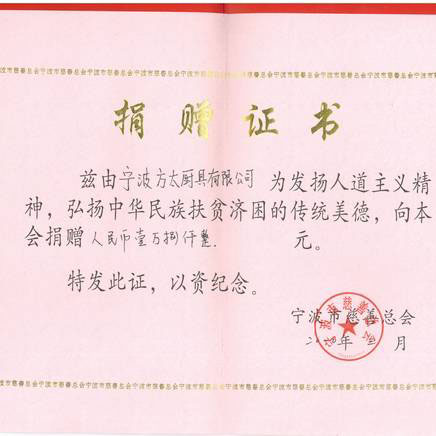 波市慈善总会宁波市慈善总会宁波市慈善总会宁波市慈善总会宁波市慈善总会宁波市慈善总会宁波市慈善总会宁波市慈
捐赠证书
兹由宁波方太厨具有限公司 为发扬人道主义精
神，弘扬中华民族扶贫济困的传统美德，向本
会捐赠 人民币壹万捌仟整. 元。
特发此证，以资纪念。
宁波市慈善总会
年 月
宁波市慈善总会
波市慈善总会宁波市慈善总会宁波市慈善总会宁波市慈善总会宁波市慈善总会宁波市慈善总会宁波市慈善总会宁波市慈